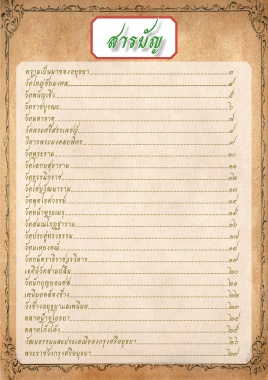 สารบัญ
ความเป็นมาของอยุธยา ๓
วัดใหญ่ชัยมงคล ๔
วัดพนัญเชิง ๕
วัดราชบูรณะ ๖
วัดมหาธาตุ ๗
วัดพระศรีสรรเพชญ์ ๘
วิหารพระมงคลบพิตร ๙
วัดพระราม ๑๐
วัดโลกยสุธาราม ๑๑
วัดธรรมิกราช ๑๒
วัดไชยวัฒนาราม ๑๓
วัดพุทไธศวรรย์ ๑๔
วัดหน้าพระเมรุ ๑๕
วัดสมณโกฏฐาราม ๑๖
วัดประดู่ทรงธรรม ๑๗
วัดมเหยงคณ์ ๑๘
วัดกษัตราธิราชวรวิหาร ๑๙
เจดีย์วัดสามปลื้ม ๒๐
วัดนักบุญยอแซฟ ๒๑
เพนียดคล้องช้าง ๒๒
วังช้างอยุธยาแลเพนียด ๒๓
ตลาดน้ำอโยธยา ๒๔
ตลาดโก้งโค้ง ๒๕
วัฒนธรรมและประเพณีของกรุงศรีอยุธยา ๒๖
พระราชวังกรุงศรีอยุธยา ๒๗